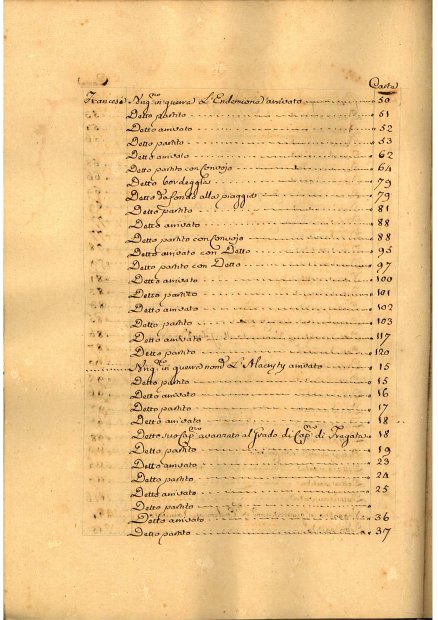 Carte
Francese Brig.no in guerra L'Endemiona arrivato 50
Detto partito 51
Detto arrivato 52
Detto partito 53
Detto arrivato 62
Detto partito con Convojo 64
Detto bordeggia 79
Detto da fondo alla piaggia 79
Detto partito 81
Detto arrivato 88
Detto partito con Convojo 88
Detto arrivato con Detto 95
Detto partito con Detto 97
Detto arrivato 100
Detto partito 101
Detto arrivato 102
Detto partito 103
Detto arrivato 117
Detto partito 120
in guerra nom.o L' arrivato 15
Detto partito 15
Detto arrivato 16
Detto partito 17
Detto arrivato 18
Detto suo Cap.no avanzato al Grado di Cap.no di Fregata 18
Detto partito 19
Detto arrivato 23
Detto partito 24
Detto arrivato 25
Detto partito
Detto arrivato 36
Detto partito 37